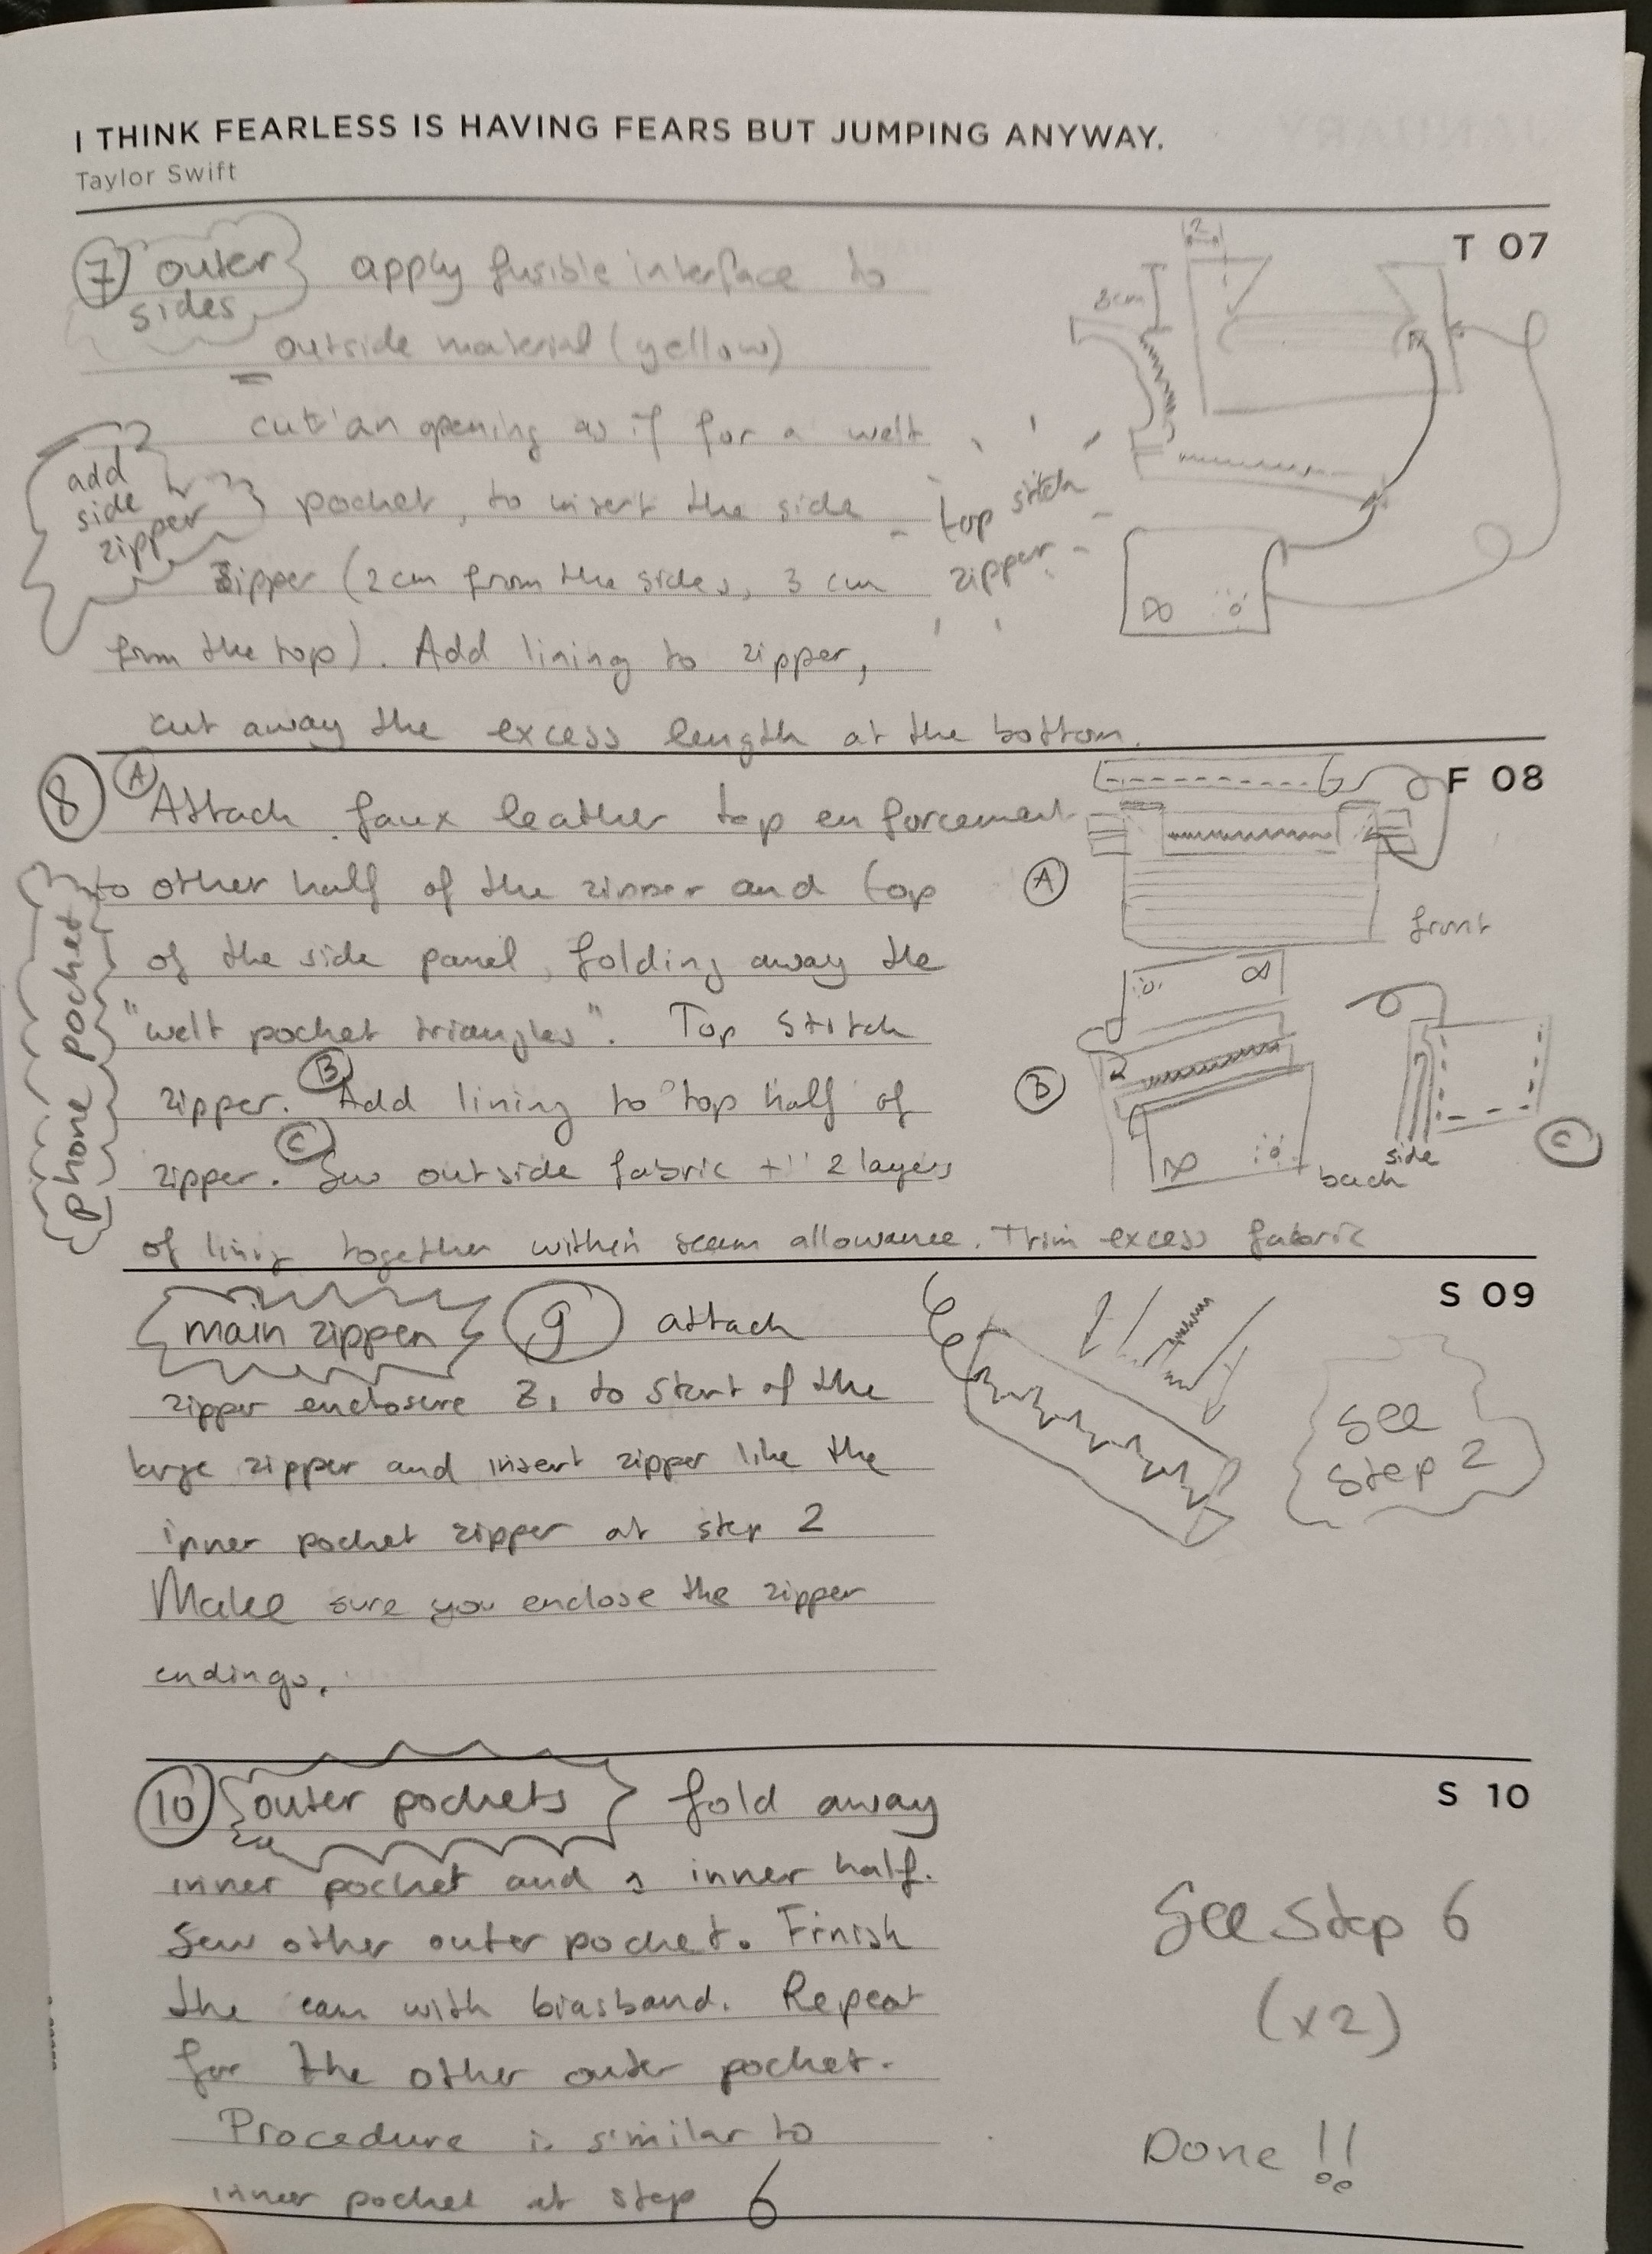 I THINK FEARLESS IS HAVING FEARS BUT JUMPING ANYWAY.
Taylor Swift
T 07
7 outer sides apply fusible interface to
outside material (yellow)
cut an opening as if for a welt
add side zipper
pocket, to insert the side
zipper (2 cm from the sides, 3 cm
from the top). Add lining to zipper,
cut away the excess length at the bottom.
2
3cm
top stitch
zipper
F 08
8 A Attach faux leather top enforcement
to other half of the zipper and top
of the side panel, folding away the
"welt pocket triangles". Top stitch
zipper. B Add lining to top half of
zipper. C Sew outside fabric + 2 layers
of lining together within seam allowance. Trim excess fabric
phone pocket
A
front
B
back
side
C
S 09
main zipper 9 attach
zipper enclosure to start of the
large zipper and insert zipper like the
inner pocket zipper at step 2
Make sure you enclose the zipper
endings.
see
step 2
S 10
10 outer pockets fold away
inner pocket and inner half.
Sew other outer pocket. Finish
the eam with biasband. Repeat
for the other outer pocket.
Procedure is similar to
inner pocket at step 6
See step 6
(x2)
Done !!